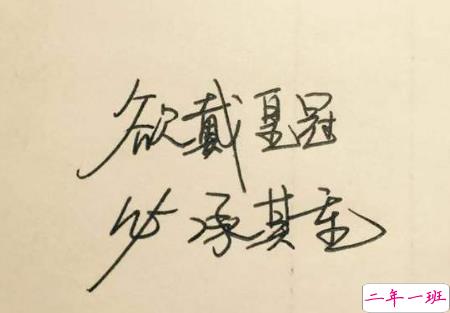 欲戴皇冠
必承其重
二年一班